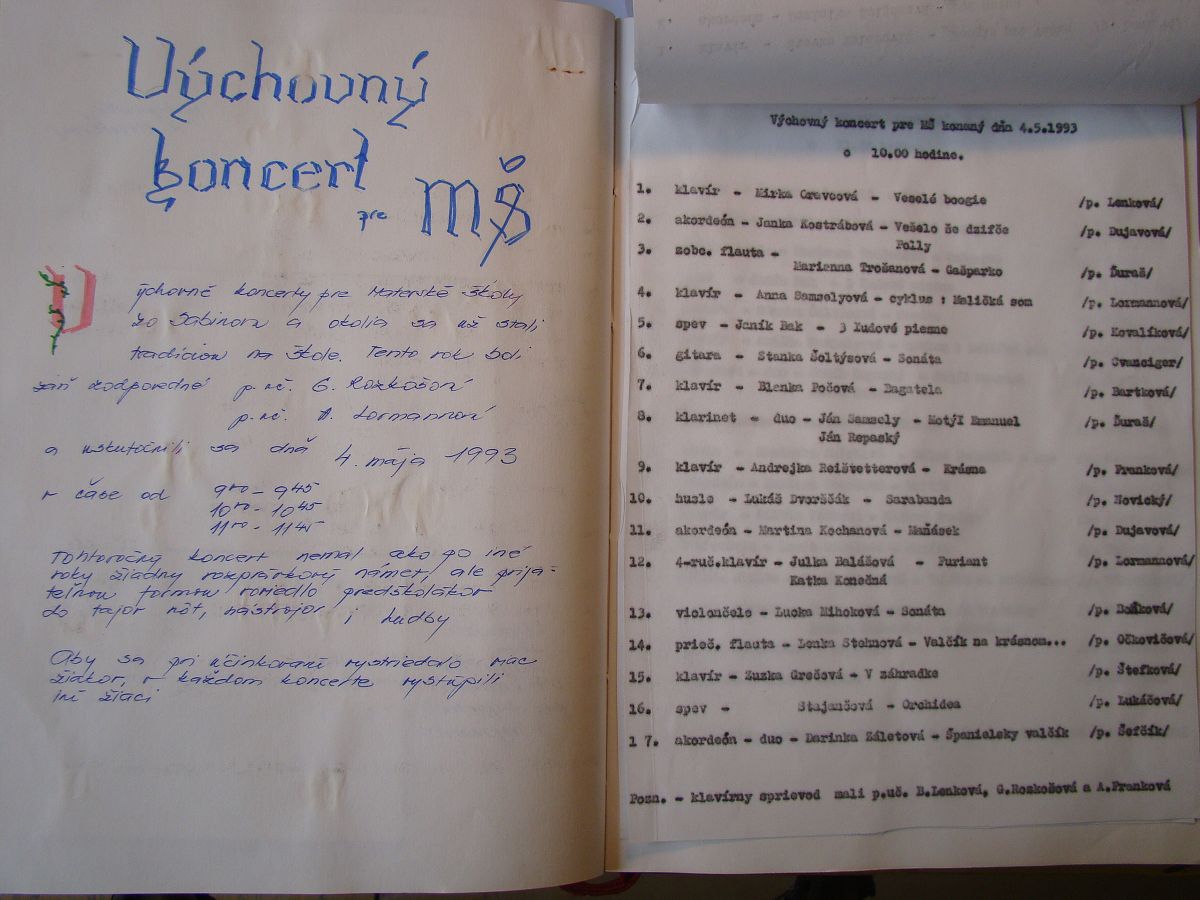 Výchovný
koncert
pre MŠ
Výchovné koncerty pre Materské školy
zo Sabinova a okolia sa už stali
tradíciou na škole. Tento rok boli
zaň zodpovedné p. uč. G. Rozkošová
p. uč. A. Lormannová
a uskutočnili sa dňa 4. mája 1993
v čase od 9⁰⁰ - 9⁴⁵
10⁰⁰ - 10⁴⁵
11⁰⁰ - 11⁴⁵
Tohtoročný koncert nemal ako po iné
roky žiadny rozprávkový námet, ale prija-
teľnou formou voviedlo predškolákov
do tajov nôt, nástrojov i hudby
Aby sa pri účinkovaní vystriedalo viac
žiakov, v každom koncerte vystúpili
iní žiaci
Výchovný koncert pre MŠ konaný dňa 4.5.1993
o 10.00 hodine.
1. klavír - Mirka Gravcová - Veselé boogie /p. Lenková/
2. akordeón - Janka Kostrábová - Vešelo še dzifče /p. Dujavová/
Polly
3. zobc. flauta -
Marienna Trošanová - Gašparko /p. Ďuraš/
4. klavír - Anna Samselyová - cyklus : Maličká som /p. Lormannová/
5. spev - Janík Bak - 3 ľudové piesne /p. Kovalíková/
6. gitara - Stanka Šoltýsová - Sonáta /p. Cvanciger/
7. klavír - Blenka Počová - Bagatela /p. Bartková/
8. klarinet - duo - Ján Samsely - Motýľ Emanuel /p. Ďuraš/
Ján Repaský
9. klavír - Andrejka Reištetterová - Krásna /p. Franková/
10. husle - Lukáš Dvorščák - Sarabanda /p. Novický/
11. akordeón - Martina Kochanová - Maňásek /p. Dujavová/
12. 4-ruč.klavír - Julka Balášová - Furiant /p. Lormannová/
Katka Konečná
13. violončelo - Lucka Mihoková - Sonáta /p. Bošková/
14. prieč. flauta - Lenka Stehnová - Valčík na krásnom... /p. Očkovičová/
15. klavír - Zuzka Grečová - V záhradke /p. Štefková/
16. spev - Stajančová - Orchidea /p. Lukáčová/
17. akordeón - duo - Darinka Záletová - Španielsky valčík /p. Šefčík/
Pozn. - klavírny sprievod mali p.uč. B.Lenková, G.Rozkošová a A.Franková